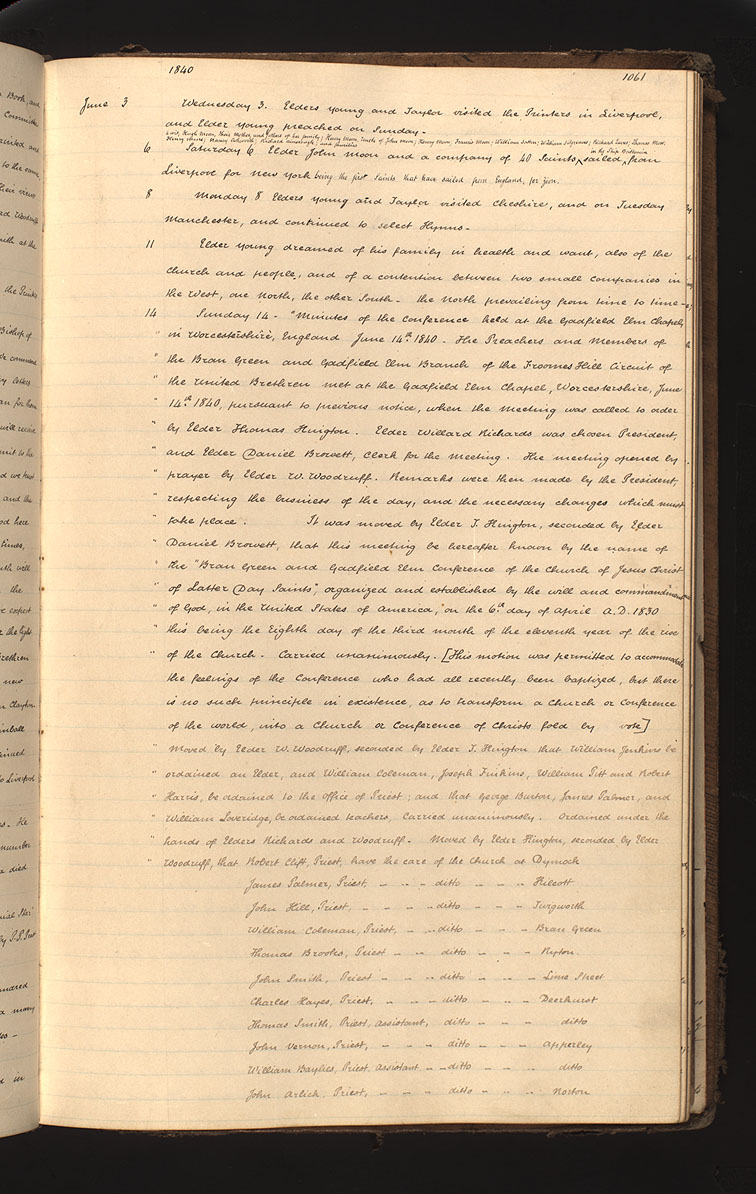 1840
1061
June 3 Wednesday 3. Elders Young and Taylor visited the Printers in Liverpool,
and Elder Young preached on Sunday.
Hugh Moon, their Mother, and others of her family; Henry Moon, uncle of John Moon; Henry Moon; Francis Moon; William Sutton; William Sitgreaves; Richard Eaves; Thomas Moss;
Henry Moore; Nancy Ashworth; Richard Ainscough; and families
6 Saturday 6 Elder John Moon and a company of 40 Saints, sailed from
in the Ship Britannia
Liverpool for New York being the first Saints that have sailed from England, for Zion.
8 Monday 8 Elders Young and Taylor visited Cheshire, and on Tuesday
Manchester, and continued to select Hymns.
11 Elder Young dreamed of his family in health and want, also of the
Church and people, and of a contention between two small companies in
the West, one North, the other South - the North prevailing from time to time -
14 Sunday 14 - "Minutes of the Conference held at the Gadfield Elm Chapel,
" in Worcestershire, England June 14th 1840. The Preachers and Members of
" the Bran Green and Gadfield Elm Branch of the Froomes Hill Circuit of
" the United Brethren met at the Gadfield Elm Chapel, Worcestershire, June
" 14th 1840, pursuant to previous notice, when the meeting was called to order
" by Elder Thomas Kington. Elder Willard Richards was chosen President,
" and Elder Daniel Browett, Clerk for the Meeting. The meeting opened by
" prayer by Elder W. Woodruff. Remarks were then made by the President,
" respecting the business of the day, and the necessary changes which must
" take place. It was moved by Elder T. Kington, seconded by Elder
" Daniel Browett, that this meeting be hereafter known by the name of
" the "Bran Green and Gadfield Elm Conference of the Church of Jesus Christ
" of Latter Day Saints", organized and established by the will and commandment
" of God, in the United States of America," on the 6th day of April A.D. 1830
" this being the Eighth day of the third month of the eleventh year of the rise
" of the Church. Carried unanimously. [This motion was permitted to accommodate
the feelings of the Conference who had all recently been baptized, but there
is no such principle in existence, as to transform a Church or Conference
of the world, into a Church or Conference of Christs fold by vote]
" Moved by Elder W. Woodruff, seconded by Elder T. Kington that William Jenkins be
" ordained an Elder, and William Coleman, Joseph Firkins, William Pitt and Robert
" Harris, be ordained to the office of Priest; and that George Burton, James Palmer, and
" William Loveridge, be ordained teachers, Carried unanimously. Ordained under the
" hands of Elders Richards and Woodruff. Moved by Elder Kington, seconded by Elder
" Woodruff, that Robert Clift, Priest, have the care of the Church at Dymock
James Palmer, Priest, - - - ditto - - - Kilcott
John Hill, Priest, - - - - ditto - - - Twigworth
William Coleman, Priest, - - ditto - - - Bran Green
Thomas Brooks, Priest - - ditto - - - Ryton.
John Smith, Priest - - - ditto - - - Lime Street
Charles Hayes, Priest, - - - ditto - - - Deerhurst
Thomas Smith, Priest, assistant, ditto - - - ditto
John Vernon, Priest, - - - ditto - - - Apperley
William Baylies, Priest assistant - - ditto - - - ditto
John Arlick, Priest, - - - ditto - - - Norton